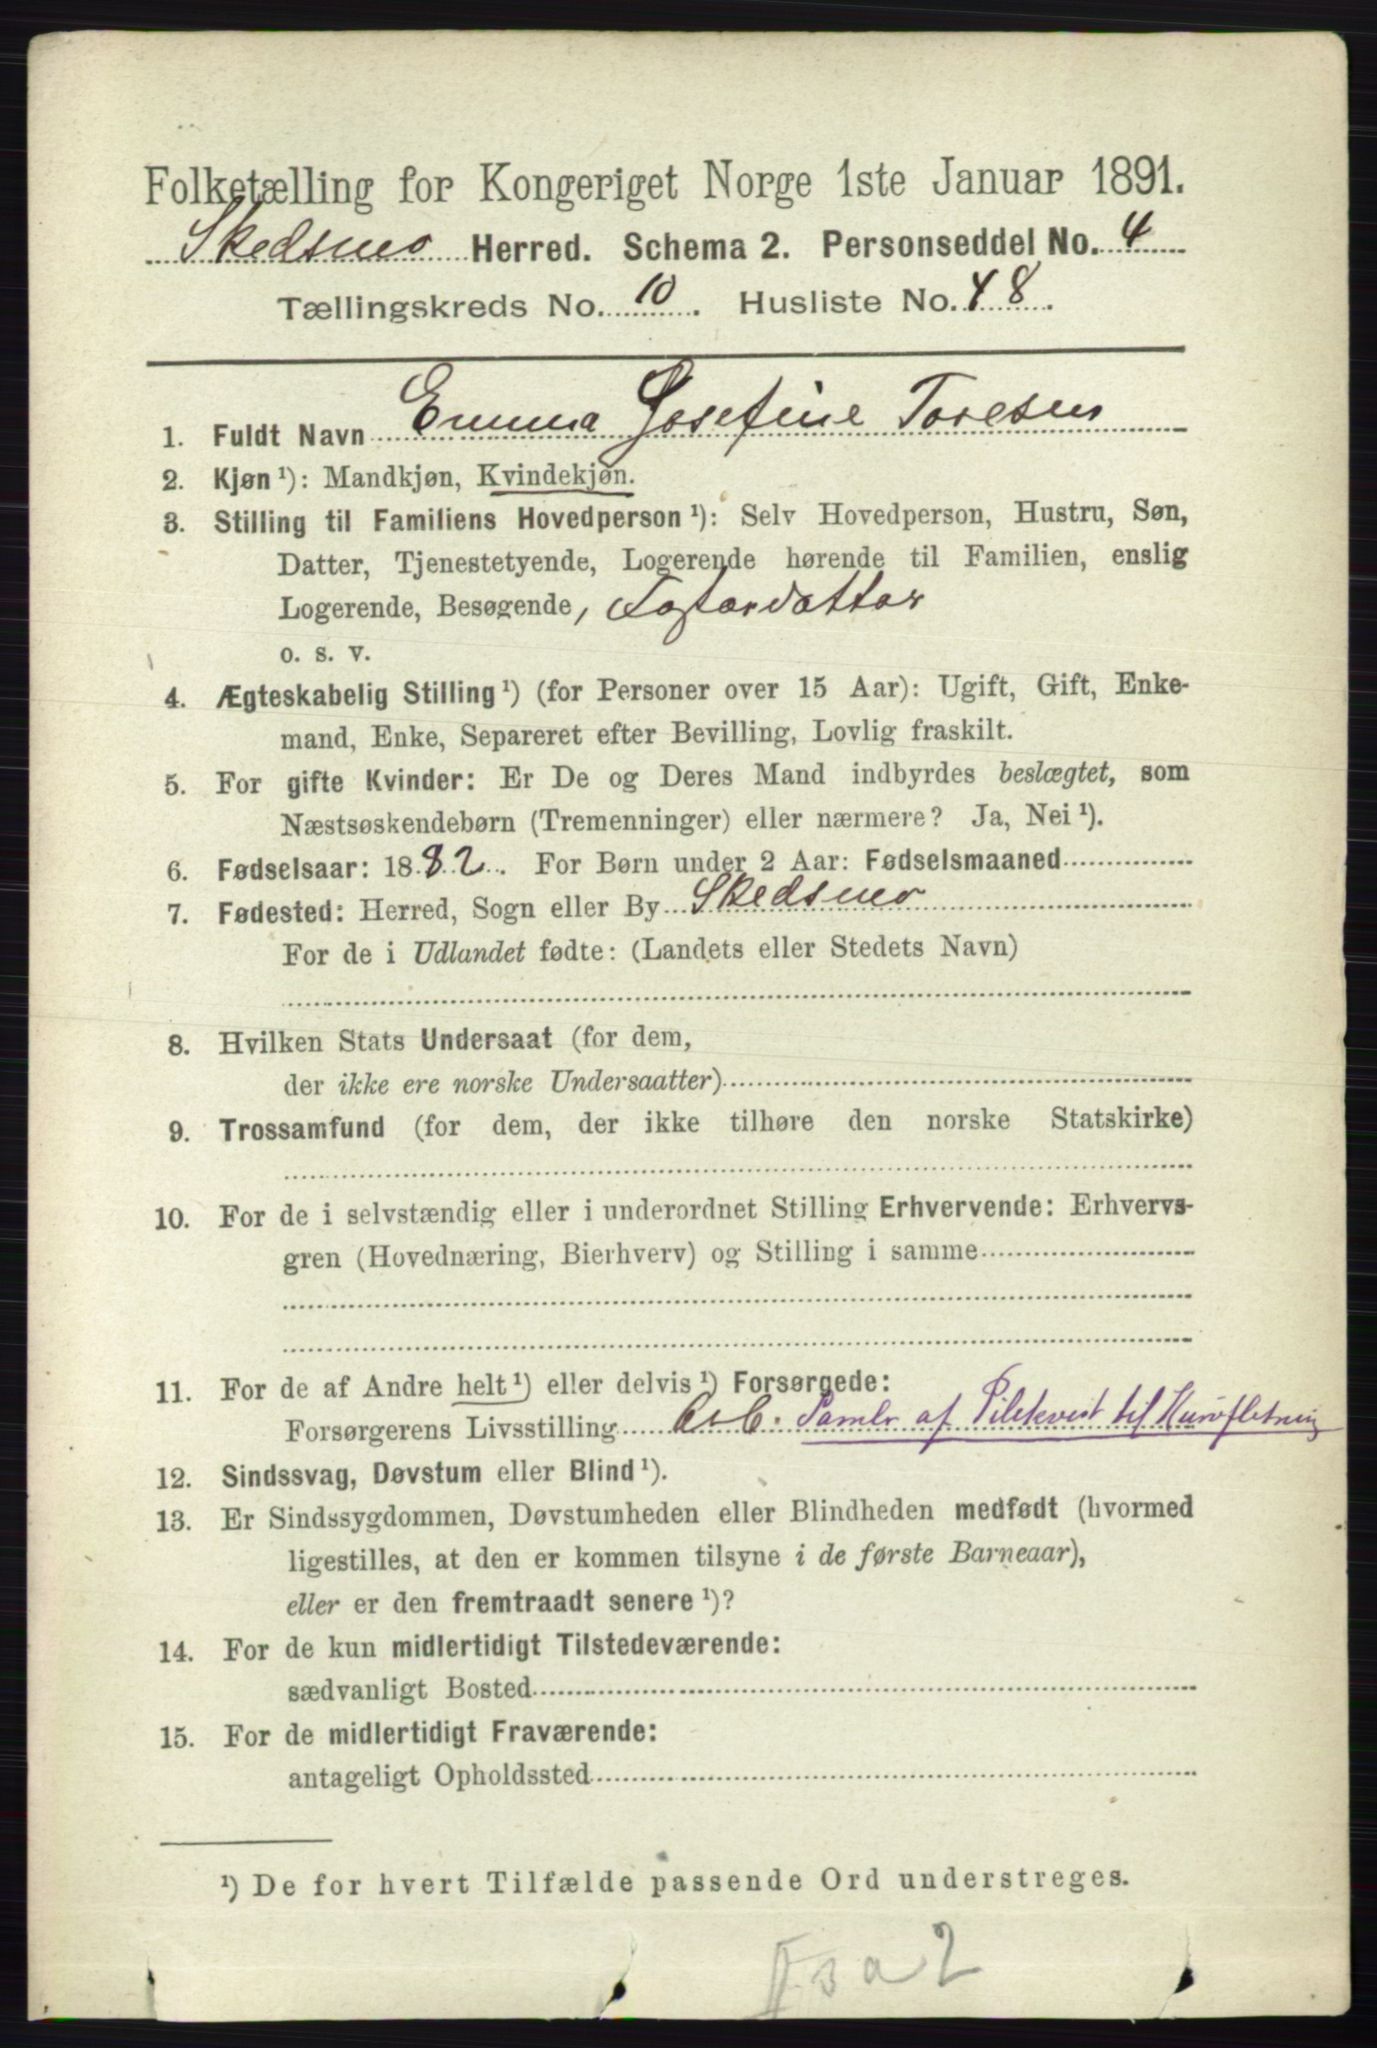 Folketælling for Kongeriget Norge 1ste Januar 1891.
Skedsmo Herred. Schema 2. Personseddel No. 4
Tællingskreds No. 10. Husliste No. 48.
1. Fuldt Navn Emma Josefine Toresen
2. Kjøn ¹): Mandkjøn, Kvindekjøn.
3. Stilling til Familiens Hovedperson ¹): Selv Hovedperson, Hustru, Søn,
Datter, Tjenestetyende, Logerende hørende til Familien, enslig
Logerende, Besøgende, Fosterdatter
o. s. v.
4. Ægteskabelig Stilling ¹) (for Personer over 15 Aar): Ugift, Gift, Enke-
mand, Enke, Separeret efter Bevilling, Lovlig fraskilt.
5. For gifte Kvinder: Er De og Deres Mand indbyrdes beslægtet, som
Næstsøskendebørn (Tremenninger) eller nærmere? Ja, Nei ¹).
6. Fødselsaar: 1882. For Børn under 2 Aar: Fødselsmaaned
7. Fødested: Herred, Sogn eller By Skedsmo
For de i Udlandet fødte: (Landets eller Stedets Navn)
8. Hvilken Stats Undersaat (for dem,
der ikke ere norske Undersaatter)
9. Trossamfund (for dem, der ikke tilhøre den norske Statskirke)
10. For de i selvstændig eller i underordnet Stilling Erhvervende: Erhvervs-
gren (Hovednæring, Bierhverv) og Stilling i samme
11. For de af Andre helt ¹) eller delvis ¹) Forsørgede:
Forsørgerens Livsstilling Arb. Samlr af Pilekvist til Kurvfletning
12. Sindssvag, Døvstum eller Blind ¹).
13. Er Sindssygdommen, Døvstumheden eller Blindheden medfødt (hvormed
ligestilles, at den er kommen tilsyne i de første Barneaar),
eller er den fremtraadt senere ¹)?
14. For de kun midlertidigt Tilstedeværende:
sædvanligt Bosted
15. For de midlertidigt Fraværende:
antageligt Opholdssted
¹) De for hvert Tilfælde passende Ord understreges.